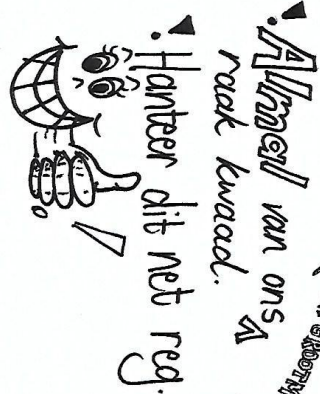 Almal van ons
raak kwaad.
Hanteer dit net reg.